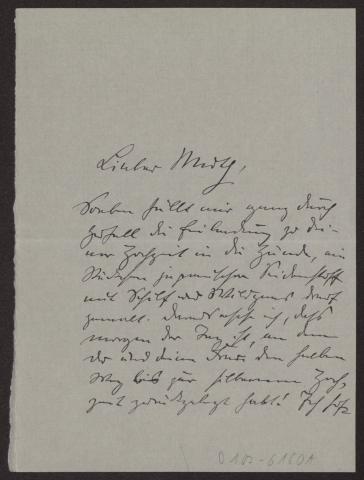 Lieber Muth,
Soeben fällt mir ganz durch
Zufall die Einladung zu dei-
ner Hochzeit in die Hände, ein
Stückchen japanischen Seidenstoff
mit Schilf und Wildgans drauf
gemalt. Demnach ich, daß
morgen der Tag ist, an dem
du und deine Frau den halben
Weg bis zur silbernen Hoch-
zeit zurückgelegt habt! Ich
D 102-6180A